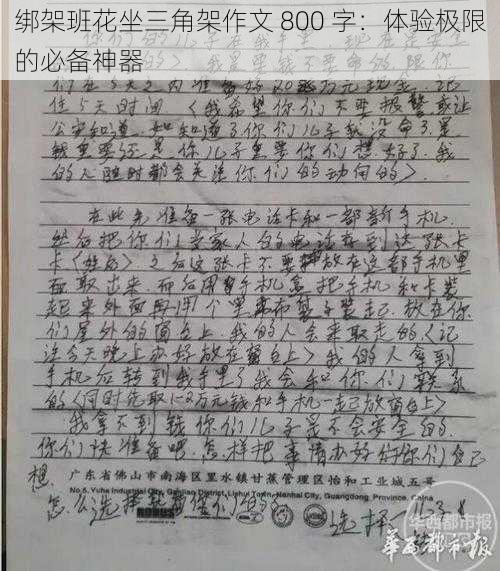 绑架班花坐三角架作文 800 字：体验极限
的必备神器
们在5天之内准备好20万元现金，记
住5天时间（我希望你们不要报警或让
公安知道，如知道了你们儿子就没命了是
钱重要还是你儿子重要你们想好了，我
的人随时都会关注你们的动向的）
在此先准备一张电话卡和一部新手机，
然后把你们家人的电话存到这张卡
卡（姓名）之后这张卡不要放在这部手机里
面取出来，
起来外面再用个黑布袋子装起，放在你
们屋外的窗台上，我的人会来取走的（记
住今天晚上办好放在窗台上）我的人拿到
手机后转到我手里了我会和你们联系
的（同时先取1-2万元钱和手机一起放窗台上）
我拿不到钱你们儿子是不会安全的，
你们快准备吧，怎样把事情办好你们自己
想，
广东省佛山市南海区里水镇甘蕉管理区怡和工业城五号
No.5, Yuhe Industrial City, Ganjiao District, Lishui Town, Nanhai City, Guangdong Province, China
怎么选择
选择
华西都市报
华西都市报